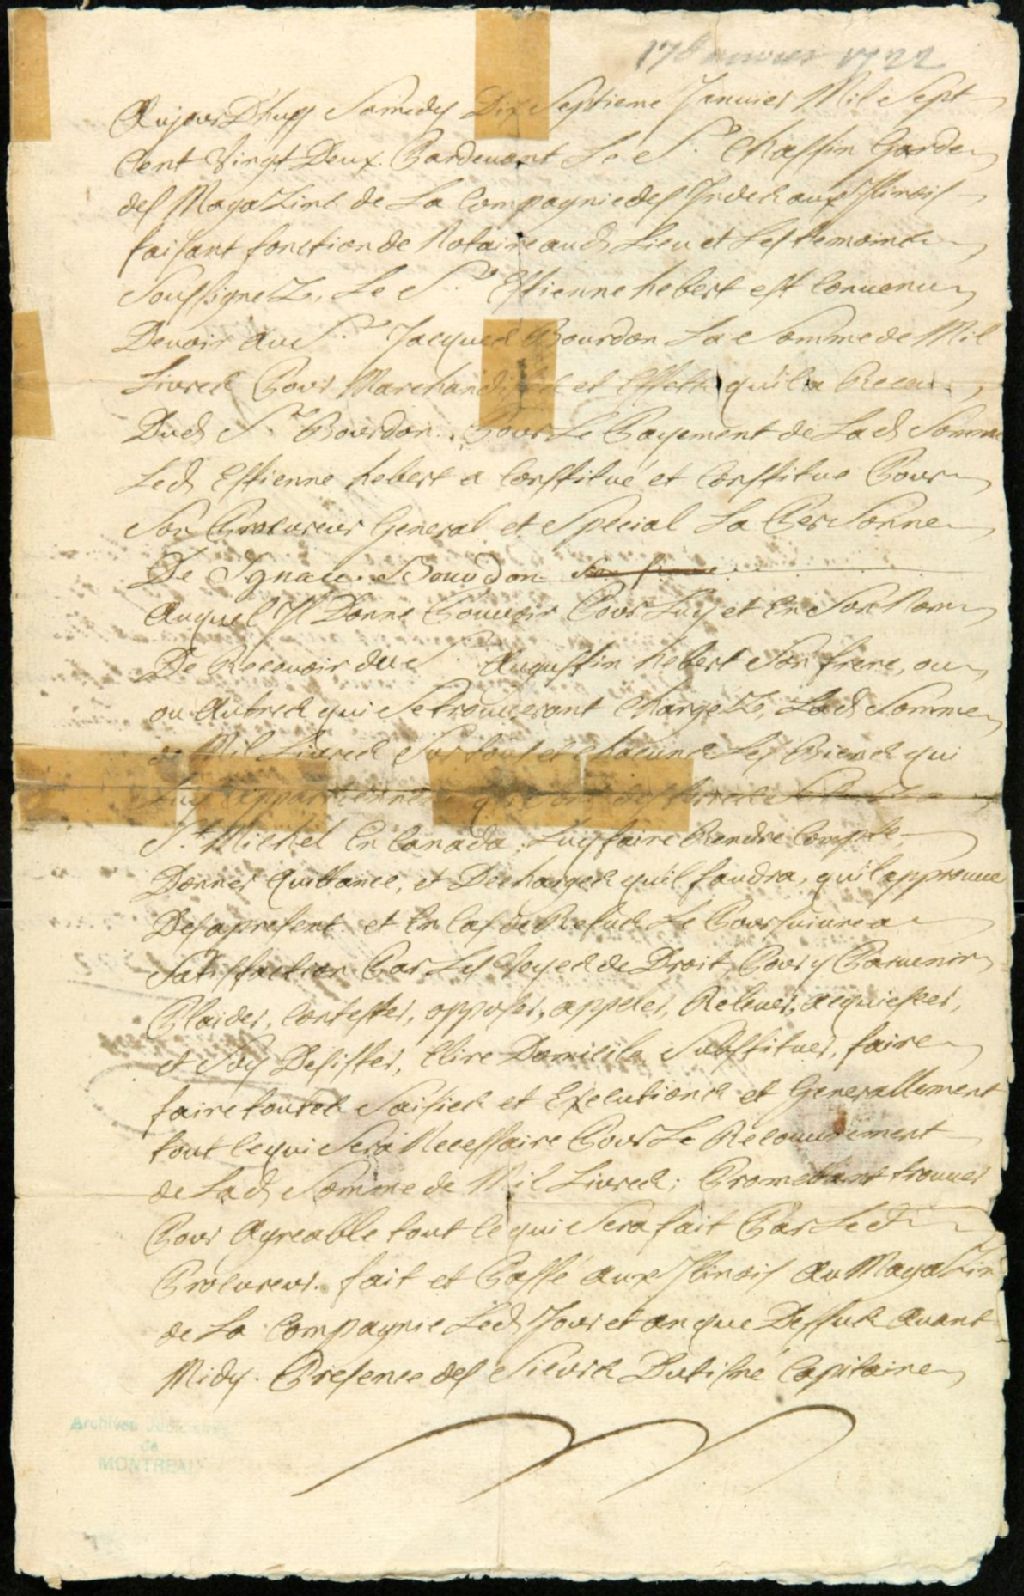 17 Janvier 1722
Aujour D'huy Samedy Dix Septieme Janvier Mil Sept
Cent Vingt Deux. Pardevant Le Sr. Chassin Garde
des Magazins de La Compagnie des Indes aux Illinois
faisant fonction de Notaire aud. Lieu et Les temoins
Soussignez, Le Sr. Estienne hebert est Convenu
Devoir au Sr. Jacques Bourdon La Somme de Mil
Livres Pour Marchandises et Effets qu'il a Receu
Dud. Sr. Bourdon. Pour Le Payement de Lad. Somme
Led. Estienne hebert a Constitué et Constitue Pour
Son Procureur General et Special La Personne
De Ignace Bourdon
Auquel Il Donne Pouvoir Pour Luy et En Son Nom
De Recevoir du S. Augustin hebert Son frere, ou
ou Autres qui Se trouveront Chargez, Lad. Somme
de Mil Livres Sur tout et chacuns Les Biens qui
Luy appartiennent
St. Michel En Canada, Luy faire Rendre Compte,
Donner Quittance, et Décharges qu'il faudra, qu'il approuve
Desapresent et En Cas de Refus Le Poursuivre a
Satisfaction Par Les Voyes de Droit, Pour y Parvenir
Plaider, Contester, opposer, appeler, Relever, acquiescer,
et S'en Desister, Elire Domicile Substituer, faire
faire toutes Saisies et Executions et Generallement
tout Ce qui Sera Necessaire Pour Le Recouvrement
de Lad. Somme de Mil Livres; Promettant trouver
Pour Agreable tout Ce qui Sera fait Par Led.
Procureur. fait et Passé aux Illinois Au Magazin
de La Compagnie Led. Jour et an que Dessus Avant
Midy. Presence des Sieurs Dutisné Capitaine
Archives Judiciaires
de
MONTREAL